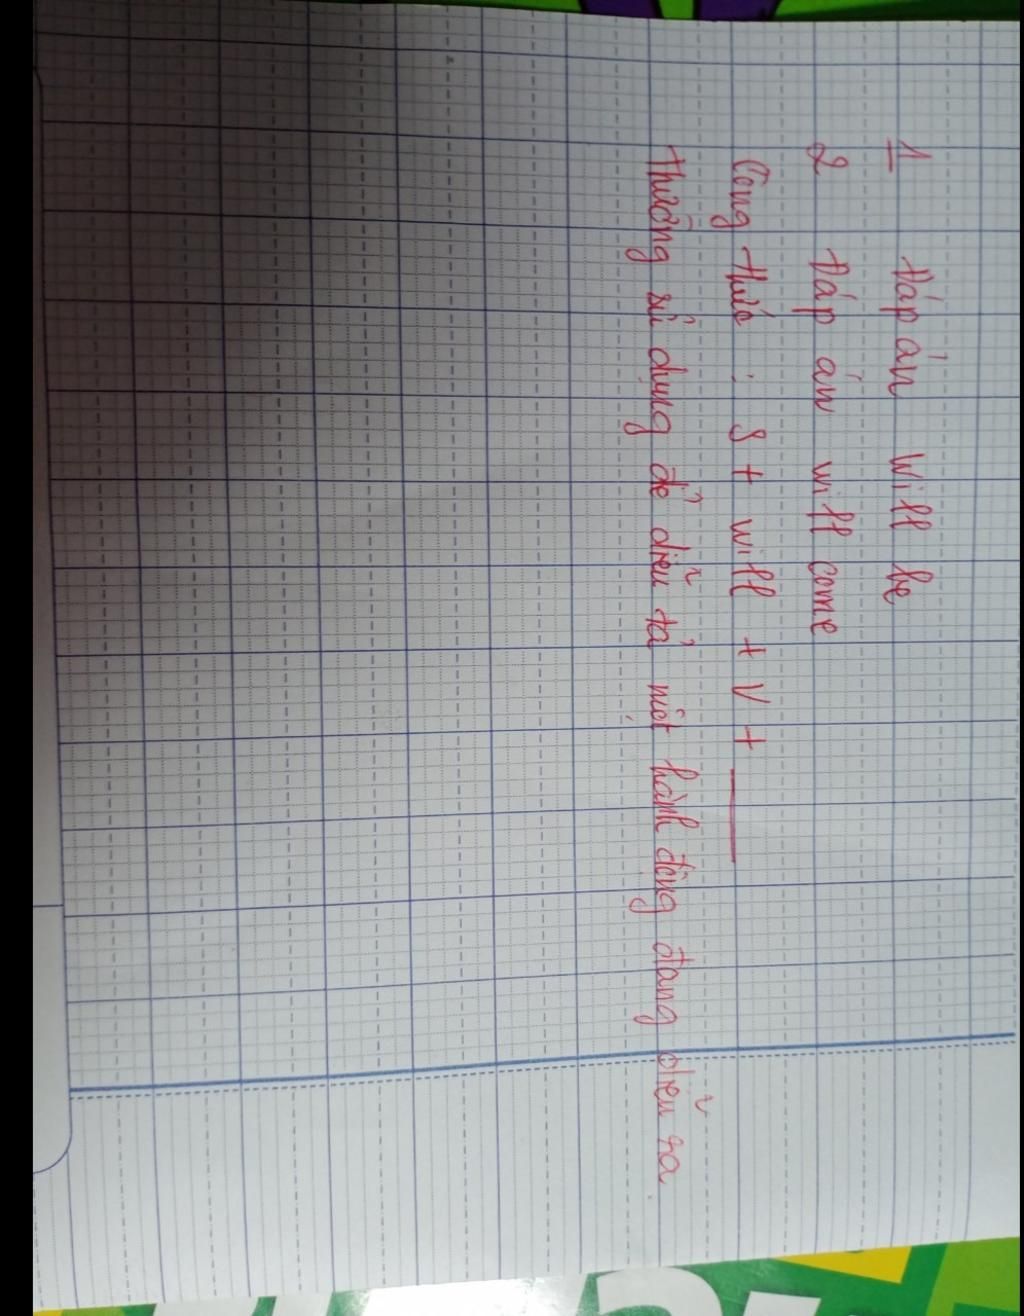 1 Đáp án will be
2 Đáp án will come
Công thức : S + will + V + ___
Thường sử dụng để diễn tả một hành động đang diễn ra